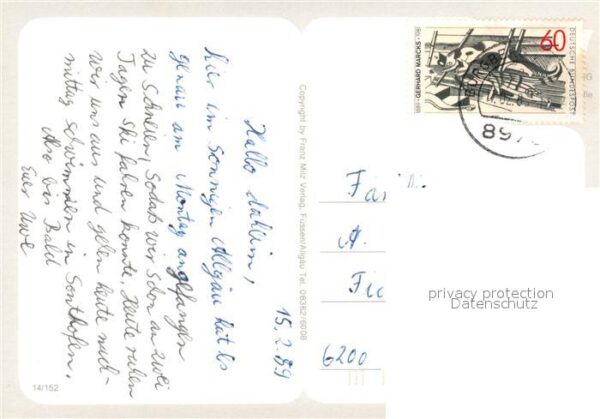 15.2.89
Hallo daheim,
hier im sonnigen Allgäu hat es
genau am Montag angefangen
zu schneien, sodaß wir schon an zwei
Tagen Ski fahren konnte. Heute ruhen
wir uns aus und gehen heute nach-
mittag schwimmen in Sonthofen.
Also bis Bald
Euer Uwe
14/152
Copyright by Franz Milz Verlag, Füssen/Allgäu Tel. 08362/6008
60
DEUTSCHE BUNDESPOST
1889 GERHARD MARCKS 1981
897
Fa
A.
Fic
6200
privacy protection
Datenschutz